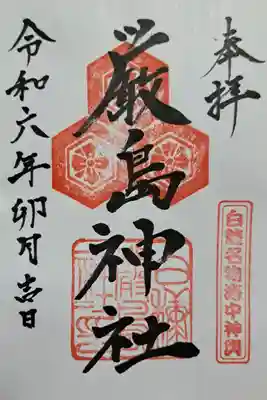 奉拝
厳島神社
令和六年卯月吉日
白濱名物海中神輿